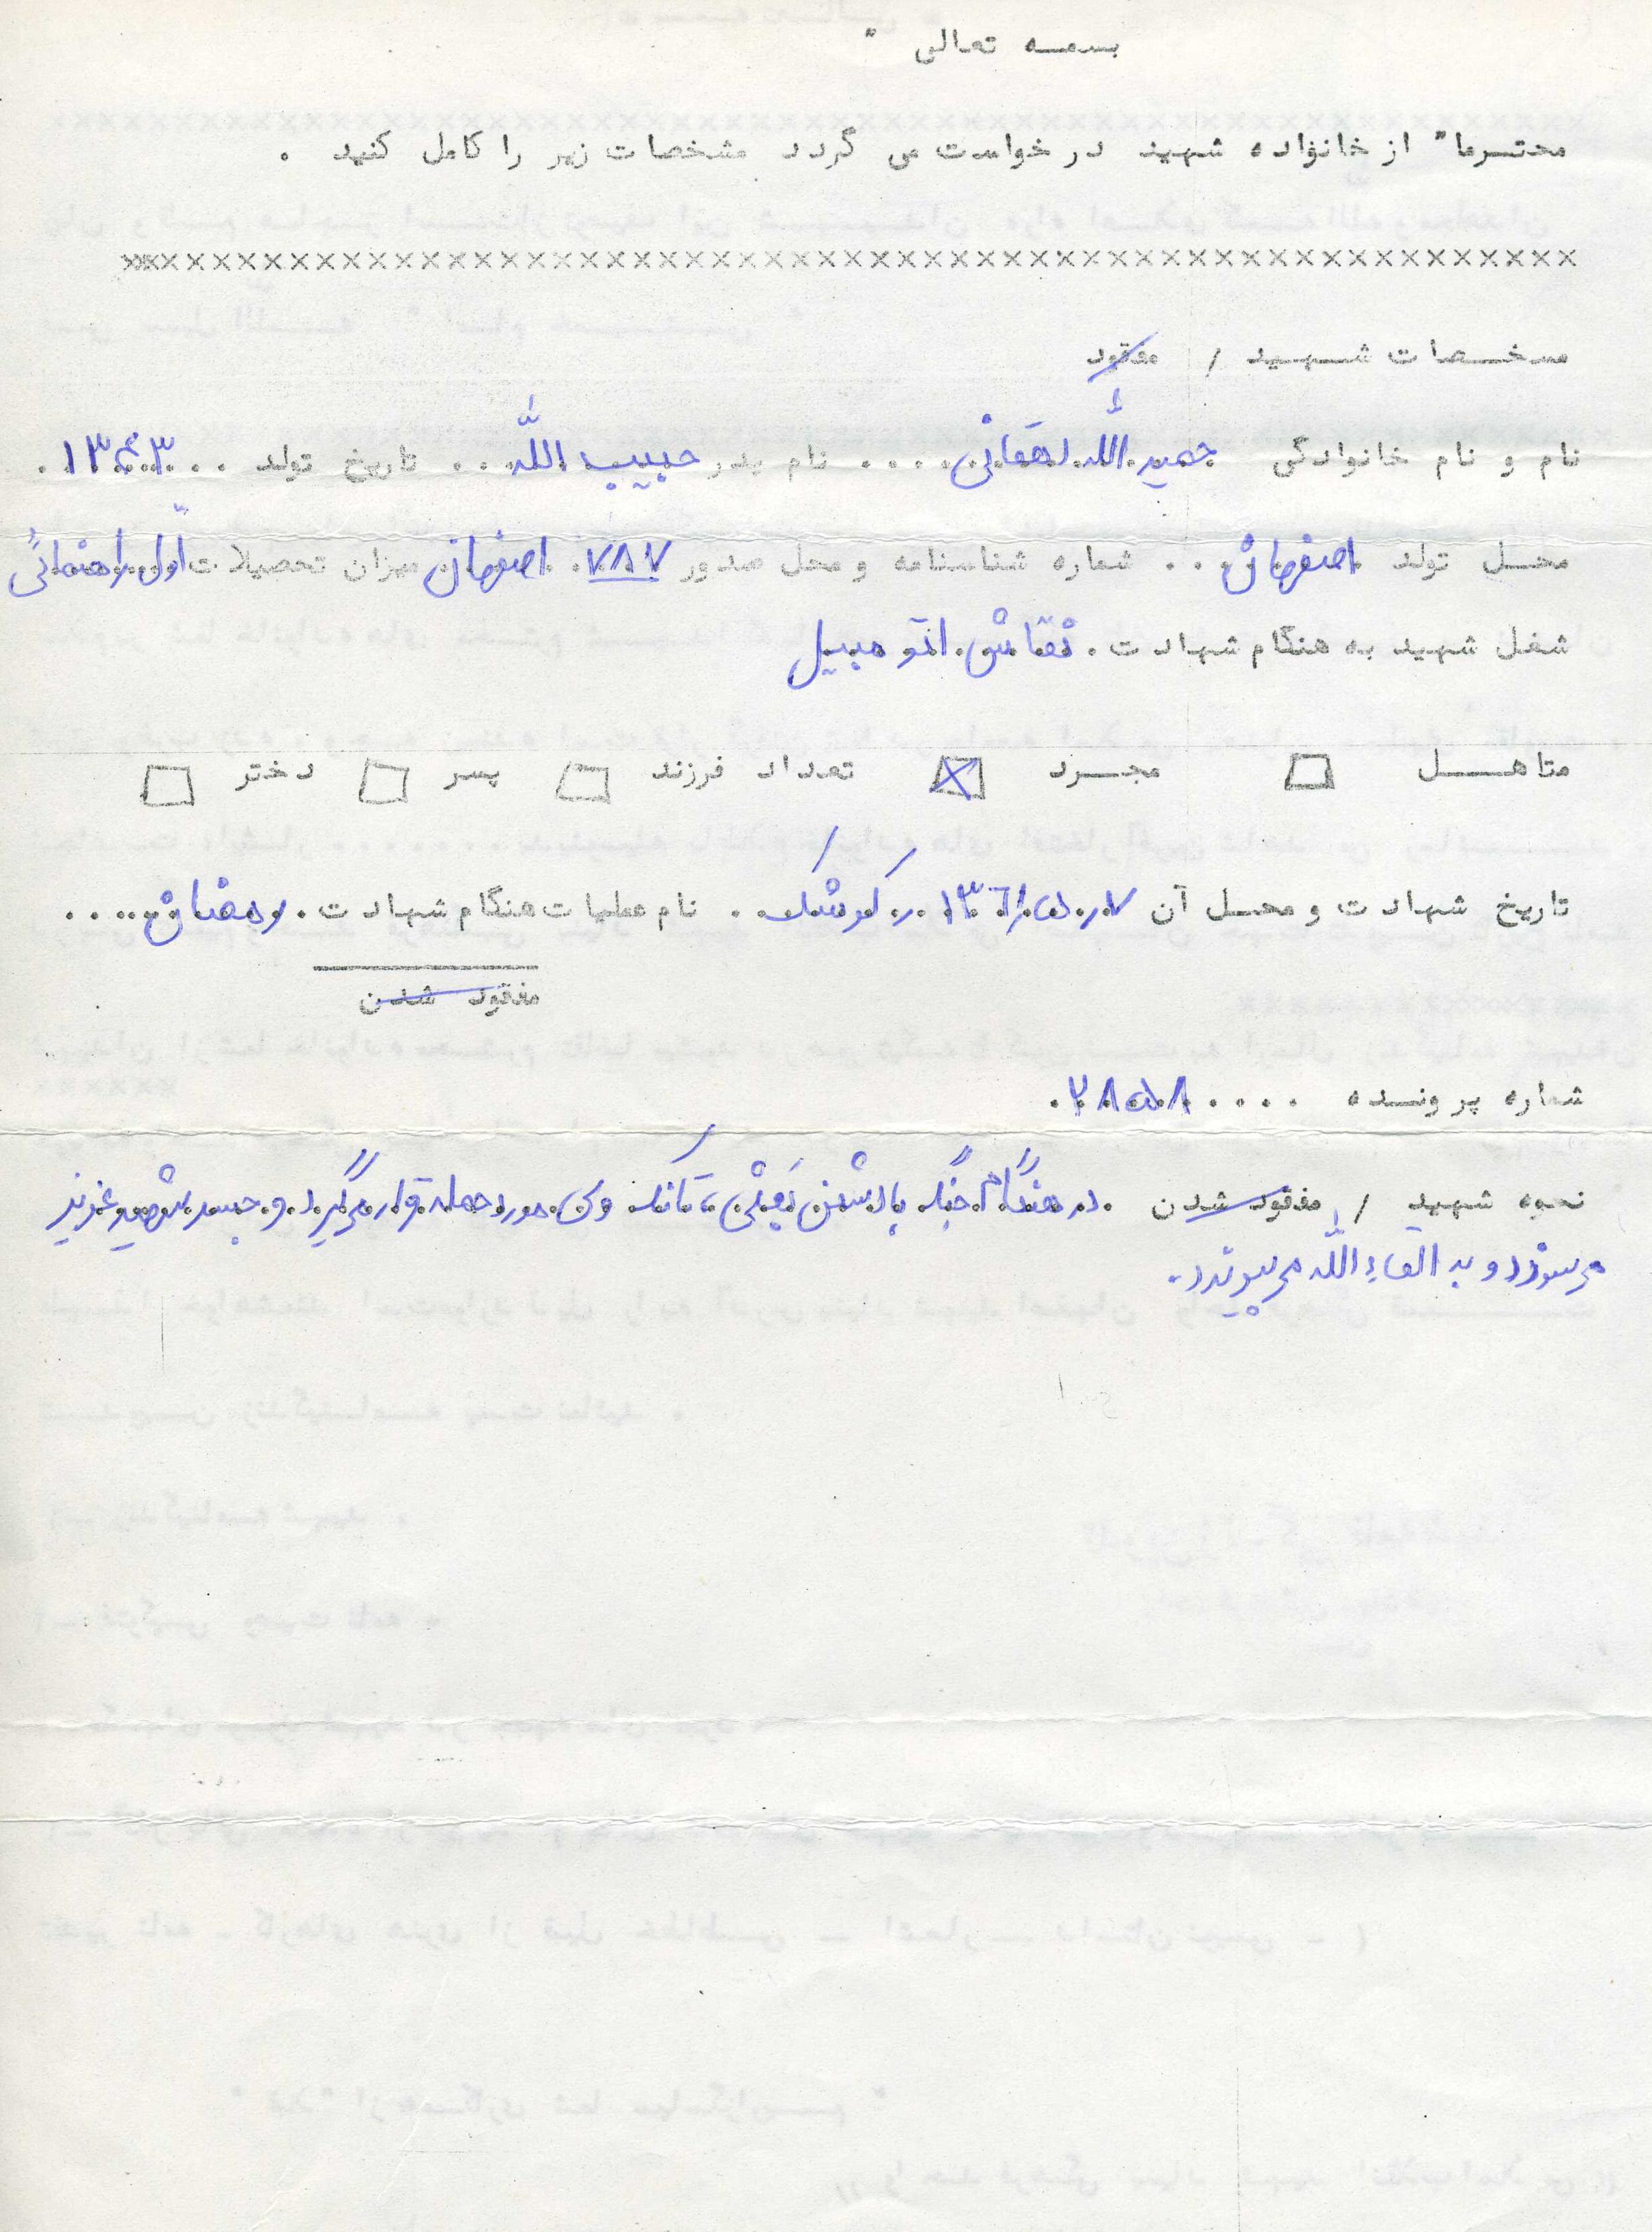 بسمه تعالی "
محترما" از خانواده شهید درخواست می گردد مشخصات زیر را کامل کنید .
××××××××××××××××××××××××××××××××××××××××××××××××××××××××
مشخصات شهید / مفقود
نام و نام خانوادگی حمید الله دهقانی .... نام پدر حبیب الله ... تاریخ تولد ... ۱۳۴۳ .
محل تولد اصفهان .. شماره شناسنامه و محل صدور ۷۸۷ . اصفهان میزان تحصیلات اول راهنمائی
شغل شهید به هنگام شهادت . نقاش اتومبیل
متاهل □ مجرد ☒ تعداد فرزند □ پسر □ دختر □
تاریخ شهادت و محل آن کوشک . نام عملیات هنگام شهادت . رمضان ....
مفقود شدن
شماره پرونده .... ۲۸۵۸ .
نحوه شهید / مفقود شدن . در هنگام جنگ با دشمن بعثی ، تانک وی مورد حمله قرار می گیرد و جسد شهید عزیز
می سوزد و به القاء الله می پیوندد .